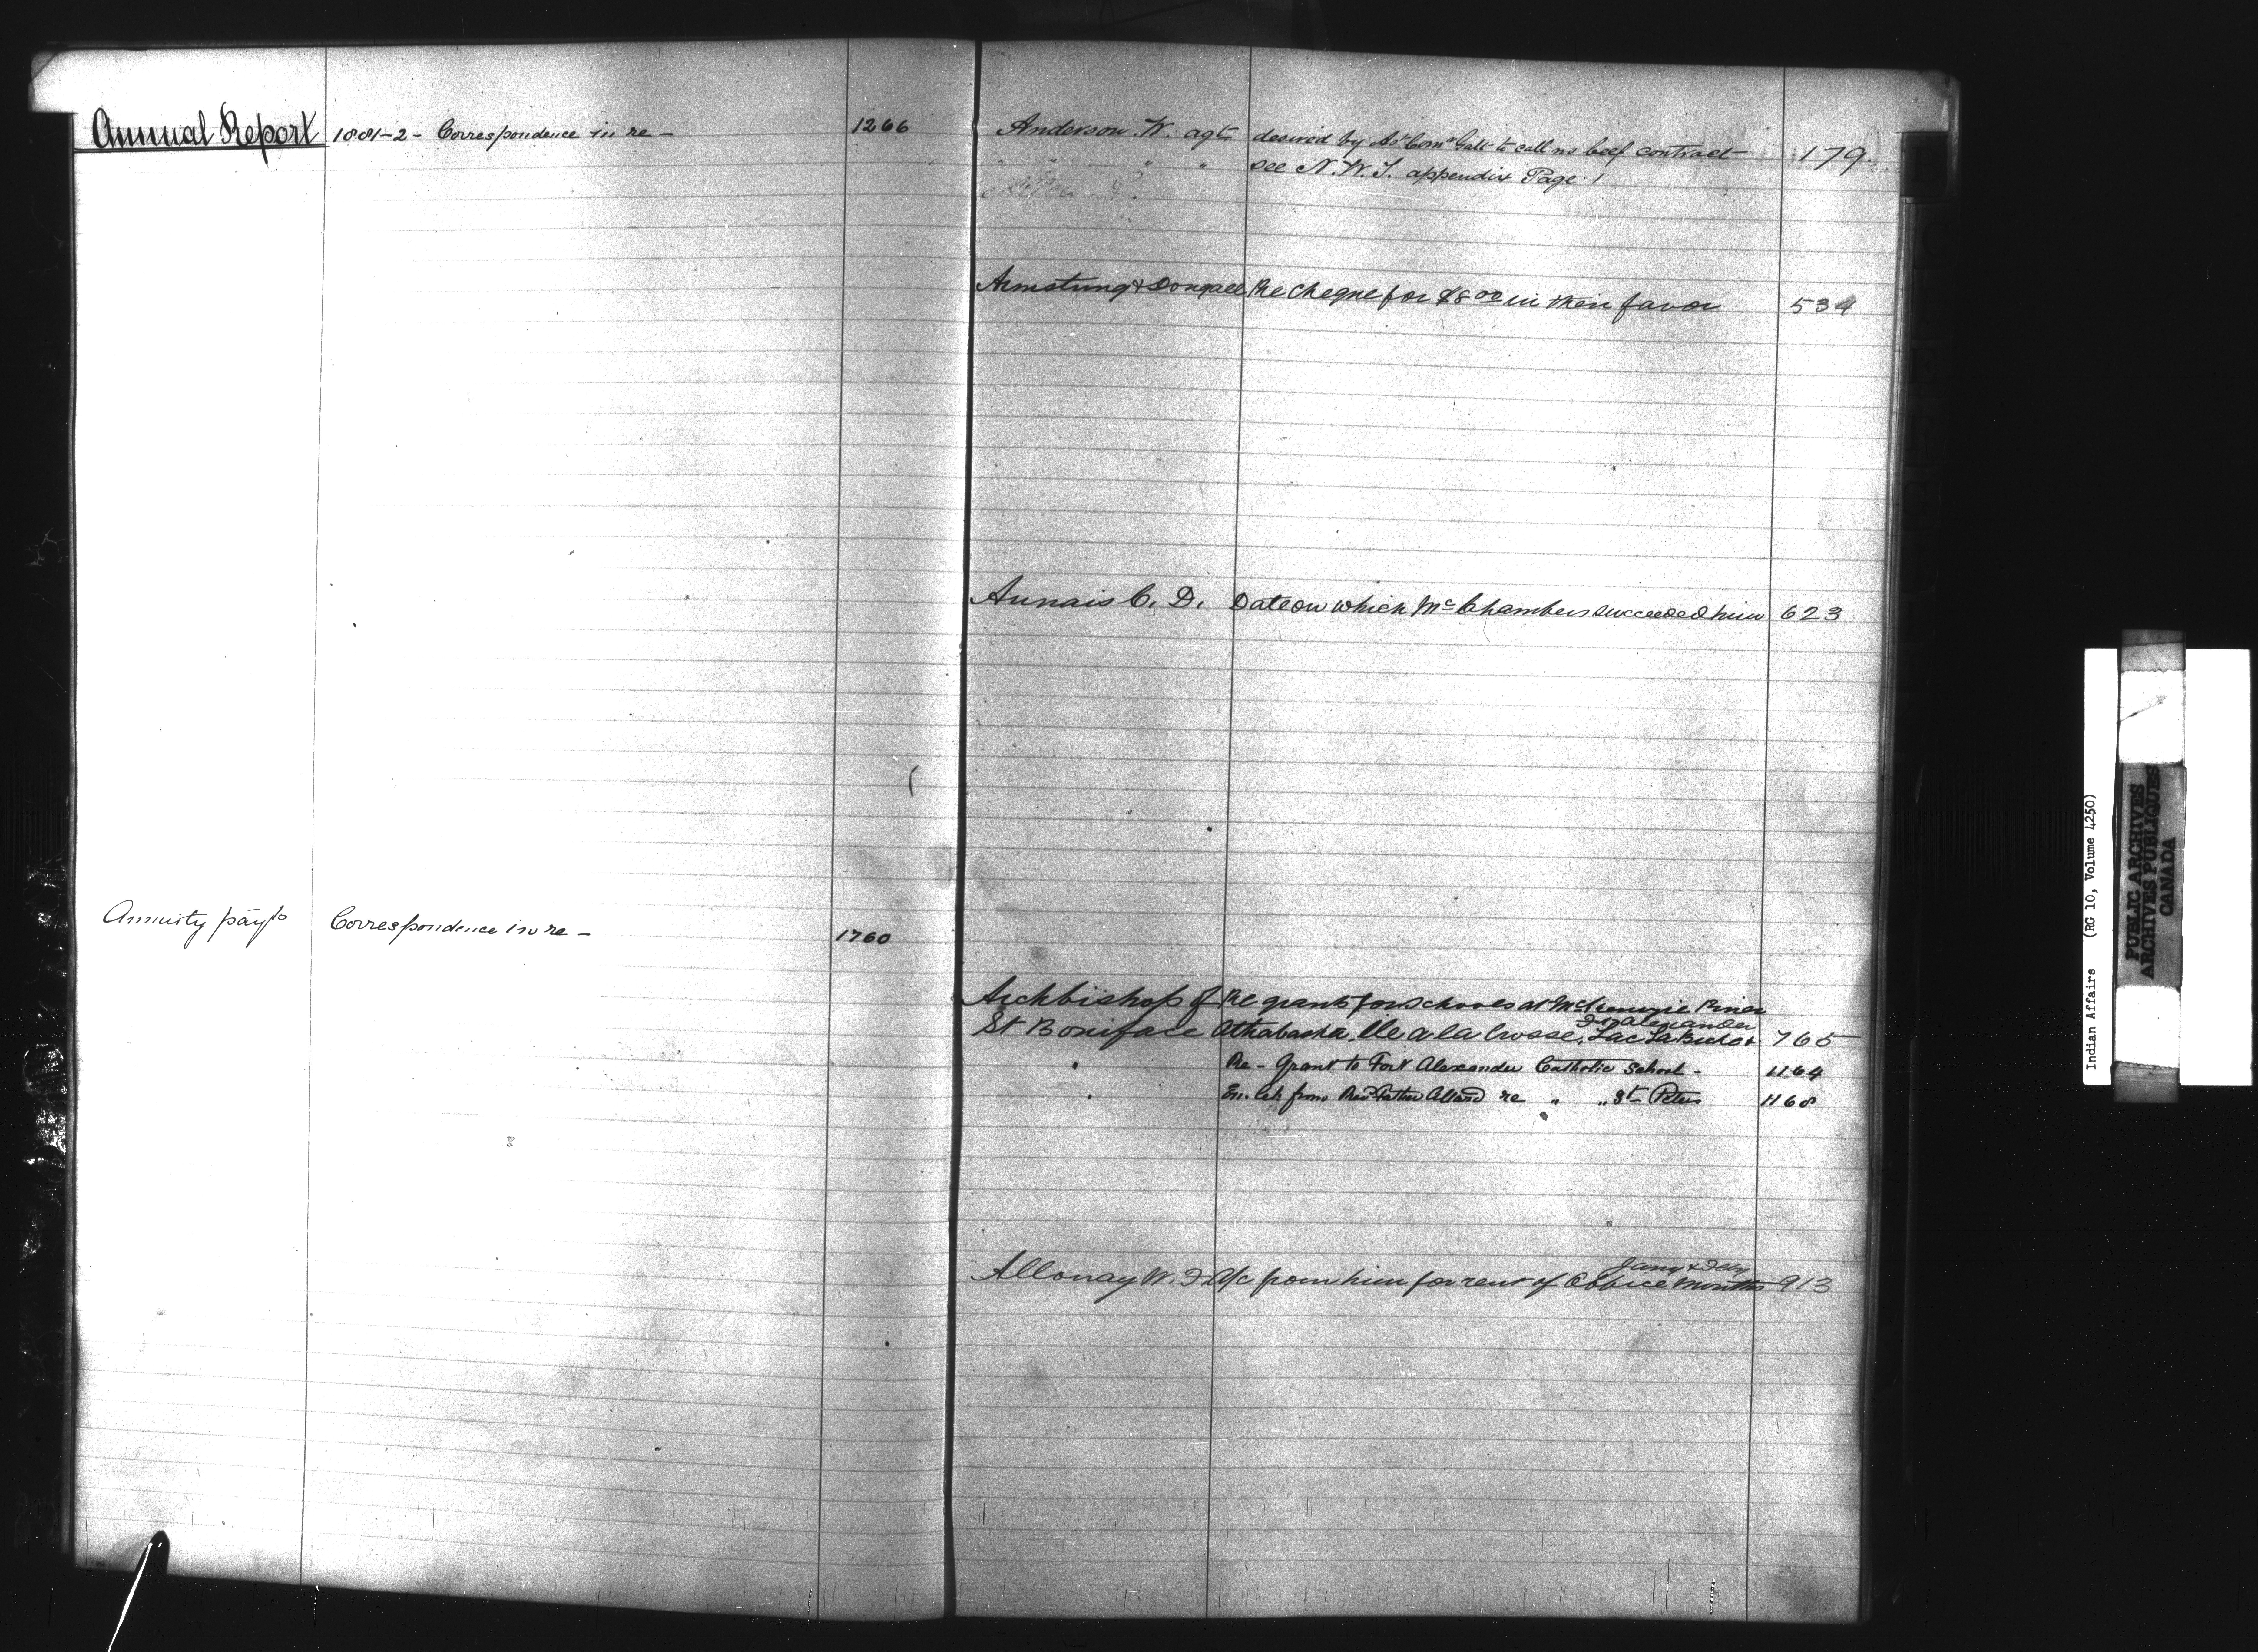 Annual Report 1881-2 - Correspondence in re - 1266
Annuity payts Correspondence in re - 1760
Anderson W. agt desired by As' Comr Galt to call no beef contract 179
" " " " See N.W.T. appendix Page 1
Armstrong & Dongall Re cheque for $8.00 in their favor 534
Aunais C. D. Date on which Mc Chambers succeeded him 623
Archbishop of Re grants for schools at McKenzie River
Ft Alexander
St Boniface Athabaska, Ile a la Crosse, Lac La Biche & 765
" Re - Grant to Fort Alexander Catholic School - 1164
" En. let from Revd Father Allard re " " St Peters 1168
Jany & Feby
Allonay W. F. A/c from him for rent of Office Months 913
Indian Affairs (RG 10, Volume 4250)
PUBLIC ARCHIVES
ARCHIVES PUBLIQUES
CANADA